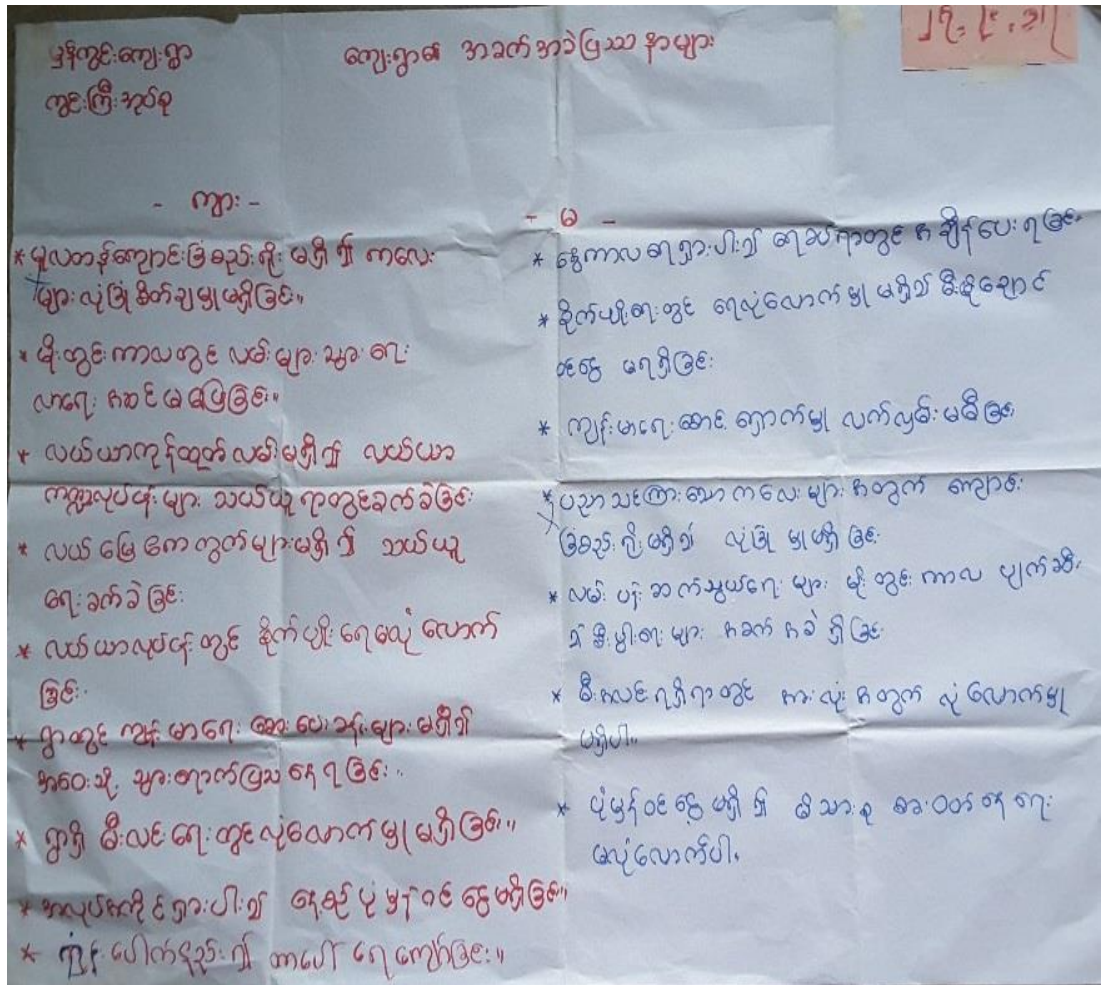 မှန်ကွင်းကျေးရွာ
ကွင်းကြီးအုပ်စု
ကျေးရွာ၏ အခက်အခဲပြဿနာများ
- ကျား -
* မူလတန်းကျောင်းခြံစည်းရိုး မရှိ၍ ကလေး
များလုံခြုံစိတ်ချမှုမရှိခြင်း။
* မိုးတွင်းကာလတွင် လမ်းများသွားရေး
လာရေး အဆင်မပြေခြင်း။
* လယ်ယာကုန်ထုတ်လမ်းမရှိ၍ လယ်ယာ
ကဏ္ဍလုပ်ငန်းများ သယ်ယူရာတွင်ခက်ခဲခြင်း
* လယ်မြေ ကွက်များမရှိ၍ သယ်ယူ
ရေးခက်ခဲခြင်း
* လယ်ယာလုပ်ငန်းတွင် စိုက်ပျိုးရေမလုံလောက်
ခြင်း
* ရွာတွင် ကျန်းမာရေး ဆေးပေးခန်းများမရှိ၍
အဝေးသို့ သွားရောက်ပြသနေရခြင်း။
* ရွာရှိ မီးလင်းရေးတွင်လုံလောက်မှုမရှိခြင်း။
* အလုပ်အကိုင်ရှားပါး၍ နေ့စဉ်ပုံမှန်ဝင်ငွေမရှိခြင်း။
* ပေါက်နည်း၍ တာပေါ်ရေကျော်ခြင်း။
- မ -
* နွေကာလရေရှားပါး၍ ရေခပ်ရာတွင် အချိန်ပေးရခြင်း
* စိုက်ပျိုးရေးတွင် ရေလုံလောက်မှုမရှိ၍ မှီခိုလောင်
ဝင်ငွေ မရရှိခြင်း
* ကျန်းမာရေးစောင့်ရှောက်မှု လက်လှမ်းမမီခြင်း
* ပညာသင်ကြားသောကလေးများအတွက် ကျောင်း
ခြံစည်းရိုးမရှိ၍ လုံခြုံမှုမရှိခြင်း
* လမ်းပန်းဆက်သွယ်ရေးများ မိုးတွင်းကာလ ပျက်စီး
၍ စီးပွါးရေးများ အခက်အခဲရှိခြင်း
* မီးအလင်းရရှိရာတွင် အားလုံးအတွက် လုံလောက်မှု
မရှိပါ။
* ပုံမှန်ဝင်ငွေမရှိ၍ မိသားစု စားဝတ်နေရေး
မလုံလောက်ပါ။